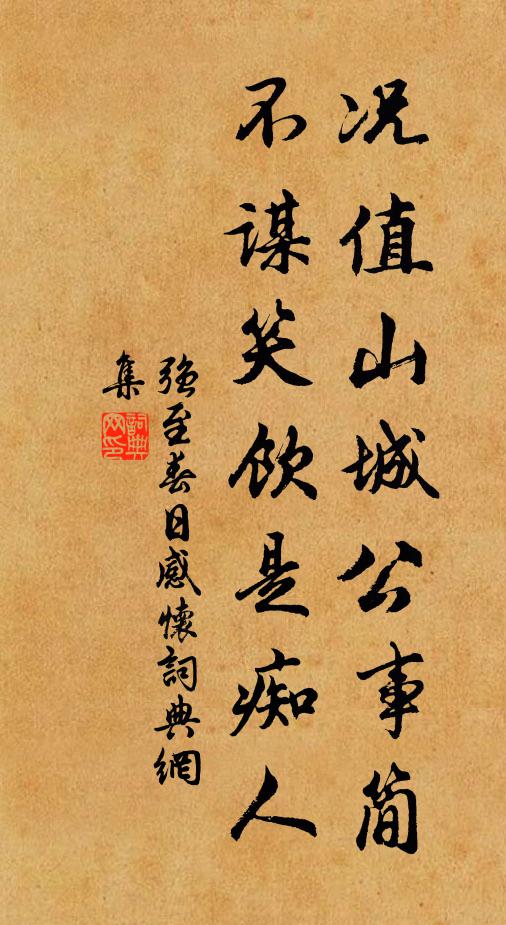 况值山城公事简
不谋笑饮是痴人
强至春日感懷詞典網
集
詞典网印